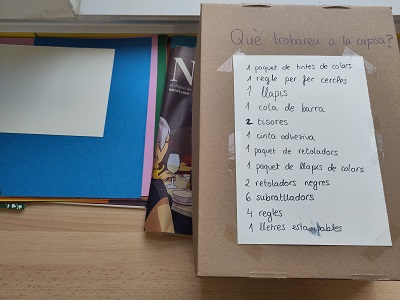 Què trobareu a la capsa?
1 paquet de tintes de colors
1 regle per fer cercles
1 llapis
1 cola de barra
2 tisores
1 cinta adhesiva
1 paquet de retoladors
1 paquet de llapis de colors
2 retoladors negres
6 subratlladors
4 regles
1 lletres estampables
N